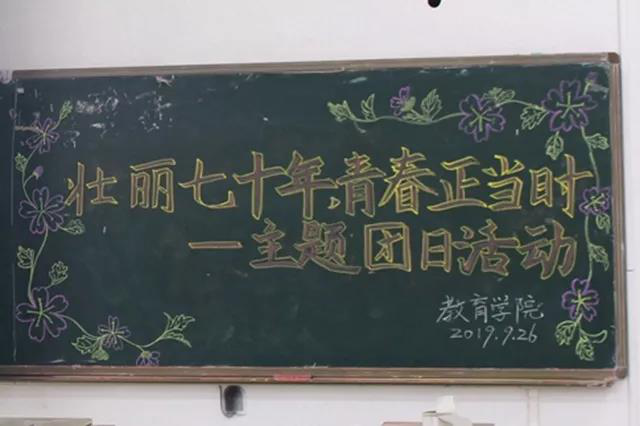 壮丽七十年,青春正当时
一主题团日活动
教育学院
2019.9.26